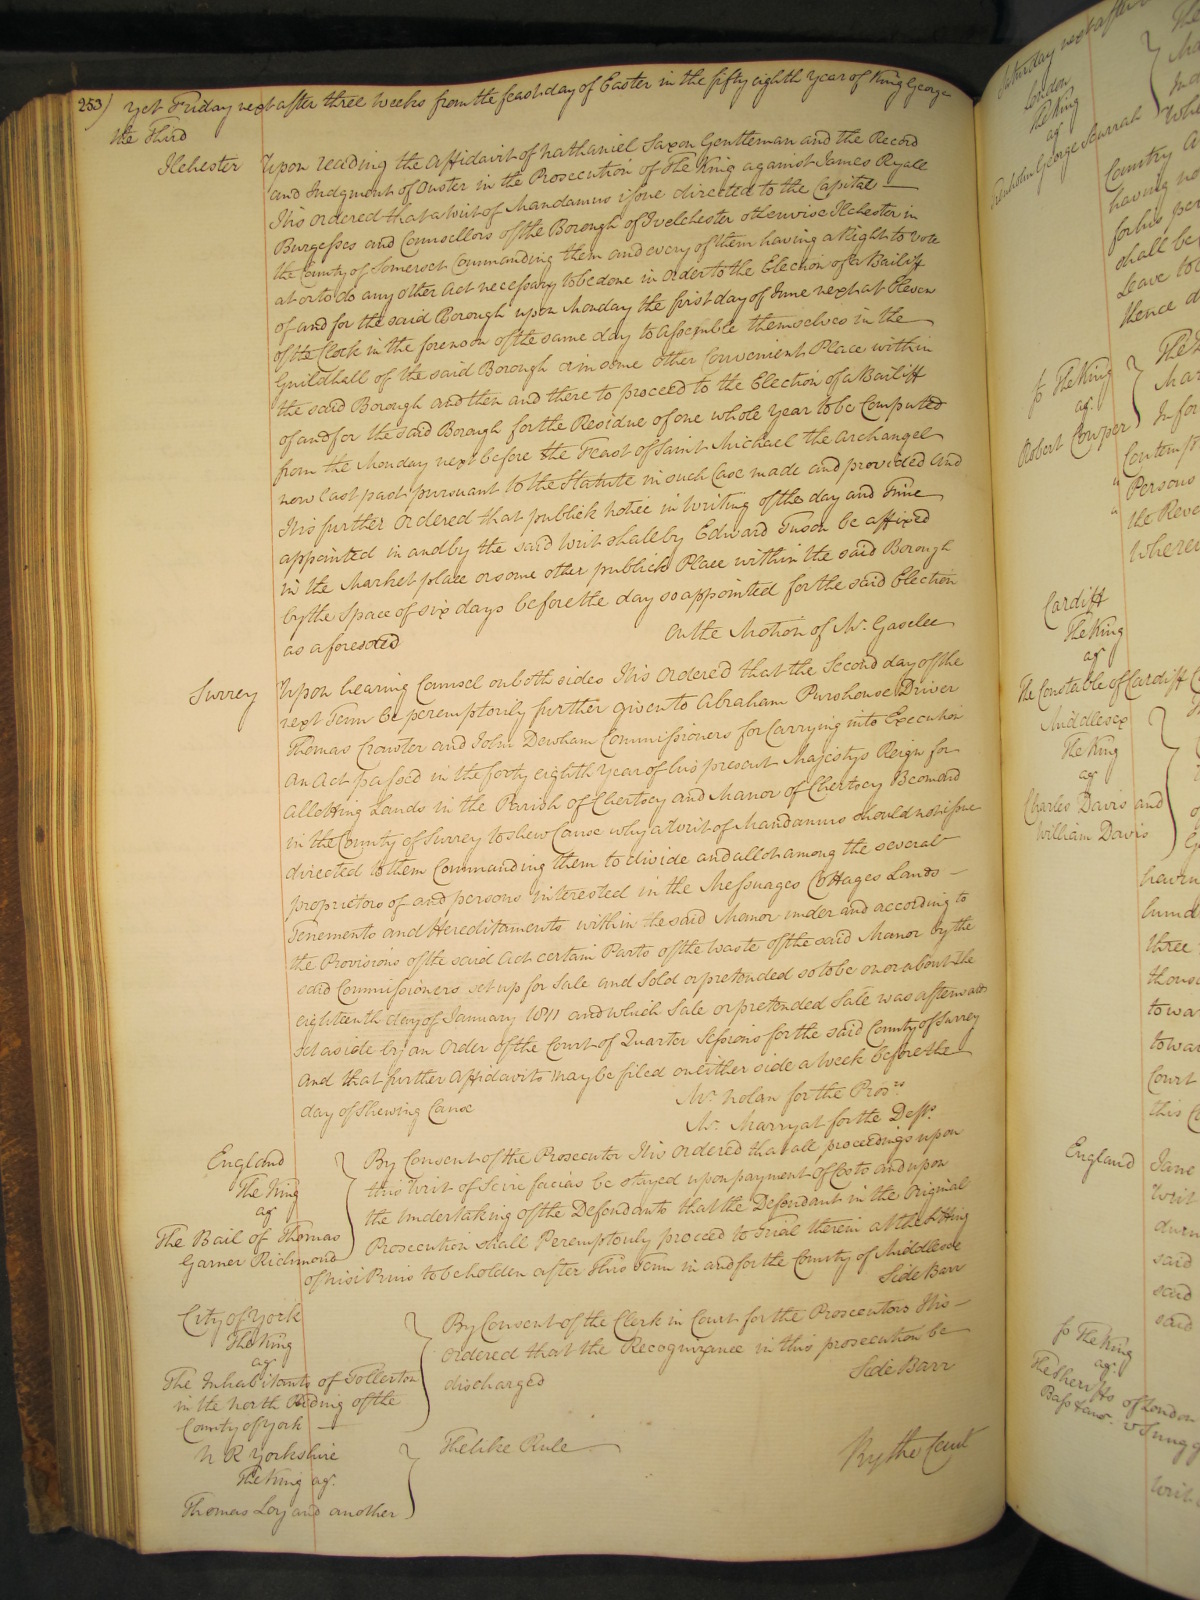 253) yet Friday next after three Weeks from the feast day of Easter in the fifty eighth Year of King George
the Third
Ilchester
Upon reading the Affidavit of Nathaniel Saxon Gentleman and the Record
and Judgment of Ouster in the Prosecution of The King against James Ryall
It is ordered that a writ of Mandamus issue directed to the Capital
Burgesses and Counsellors of the Borough of Ivelchester otherwise Ilchester in
the County of Somerset Commanding them and every of them having a Right to Vote
at or to do any other Act necessary to be done in Order to the Election of a Bailiff
of and for the said Borough upon Monday the first day of June next at Eleven
of the Clock in the forenoon of the same day to Assemble themselves in the
Guildhall of the said Borough or in some other Convenient Place within
the said Borough and then and there to proceed to the Election of a Bailiff
of and for the said Borough for the Residue of one whole Year to be Computed
from the Monday next before the Feast of Saint Michael the Archangel
now last past pursuant to the Statute in such Case made and provided And
It is further Ordered that publick Notice in Writing of the day and Time
appointed in and by the said Writ shall by Edward Tuson be affixed
in the Market place or some other publick Place within the said Borough
by the Space of six days before the day so appointed for the said Election
as aforesaid
On the Motion of Mr. Gaselee
Surrey
Upon hearing Counsel on both sides It is Ordered that the Second day of the
next Term be peremptorily further given to Abraham Purshouse Driver
Thomas Crowter and John Dewham Commissioners for Carrying into Execution
an Act passed in the forty eighth Year of his present Majestys Reign for
Allotting Lands in the Parish of Chertsey and Manor of Chertsey Beomond
in the County of Surrey to shew Cause why a Writ of Mandamus should not issue
directed to them Commanding them to divide and allot among the several
proprietors of and persons interested in the Messuages Cottages Lands
Tenements and Hereditaments within the said Manor under and according to
the Provisions of the said Act certain Parts of the Waste of the said Manor by the
said Commissioners set up for Sale and Sold or pretended so to be on or about the
eighteenth day of January 1811 and which Sale or pretended Sale was afterwards
set aside by an Order of the Court of Quarter Sessions for the said County of Surrey
And that further Affidavits may be filed on either side a Week before the
day of Shewing Cause
Mr. Nolan for the Pros.rs
Mr. Marryat for the Defts.
England
The King
agt.
The Bail of Thomas
Garner Richmond
By Consent of the Prosecutor It is Ordered that all proceedings upon
this Writ of Scire facias be stayed upon payment of Costs and upon
the undertaking of the Defendants that the Defendant in the Original
Prosecution shall Peremptorily proceed to Trial therein at the Sitting
of Nisi Prius to be holden after This Term in and for the County of Middlesex
Side Barr
City of York
The King
agt.
The Inhabitants of Tollerton
in the North Riding of the
County of York
By Consent of the Clerk in Court for the Prosecutors It is
Ordered that the Recognizance in this prosecution be
discharged
Side Barr
N R Yorkshire
The King agt.
Thomas Loy and another
The like Rule
By the Court
Saturday next after
London
The King
agt.
George Scurrah
Country
having
for his
shall be
Leave to
thence
fo The King
agt.
Robert Cowper
The
Mar
Infor
Contemp
Persons
the Reve
Wherei
Cardiff
The King
agt.
The Constable of Cardiff
Middlesex
The King
agt.
Charles Davis and
William Davis
three
thous
towar
towar
Court
this
England
Jane
Writ
durin
said
said
said
fo The King
agt.
The Sheriffs of London
Writ